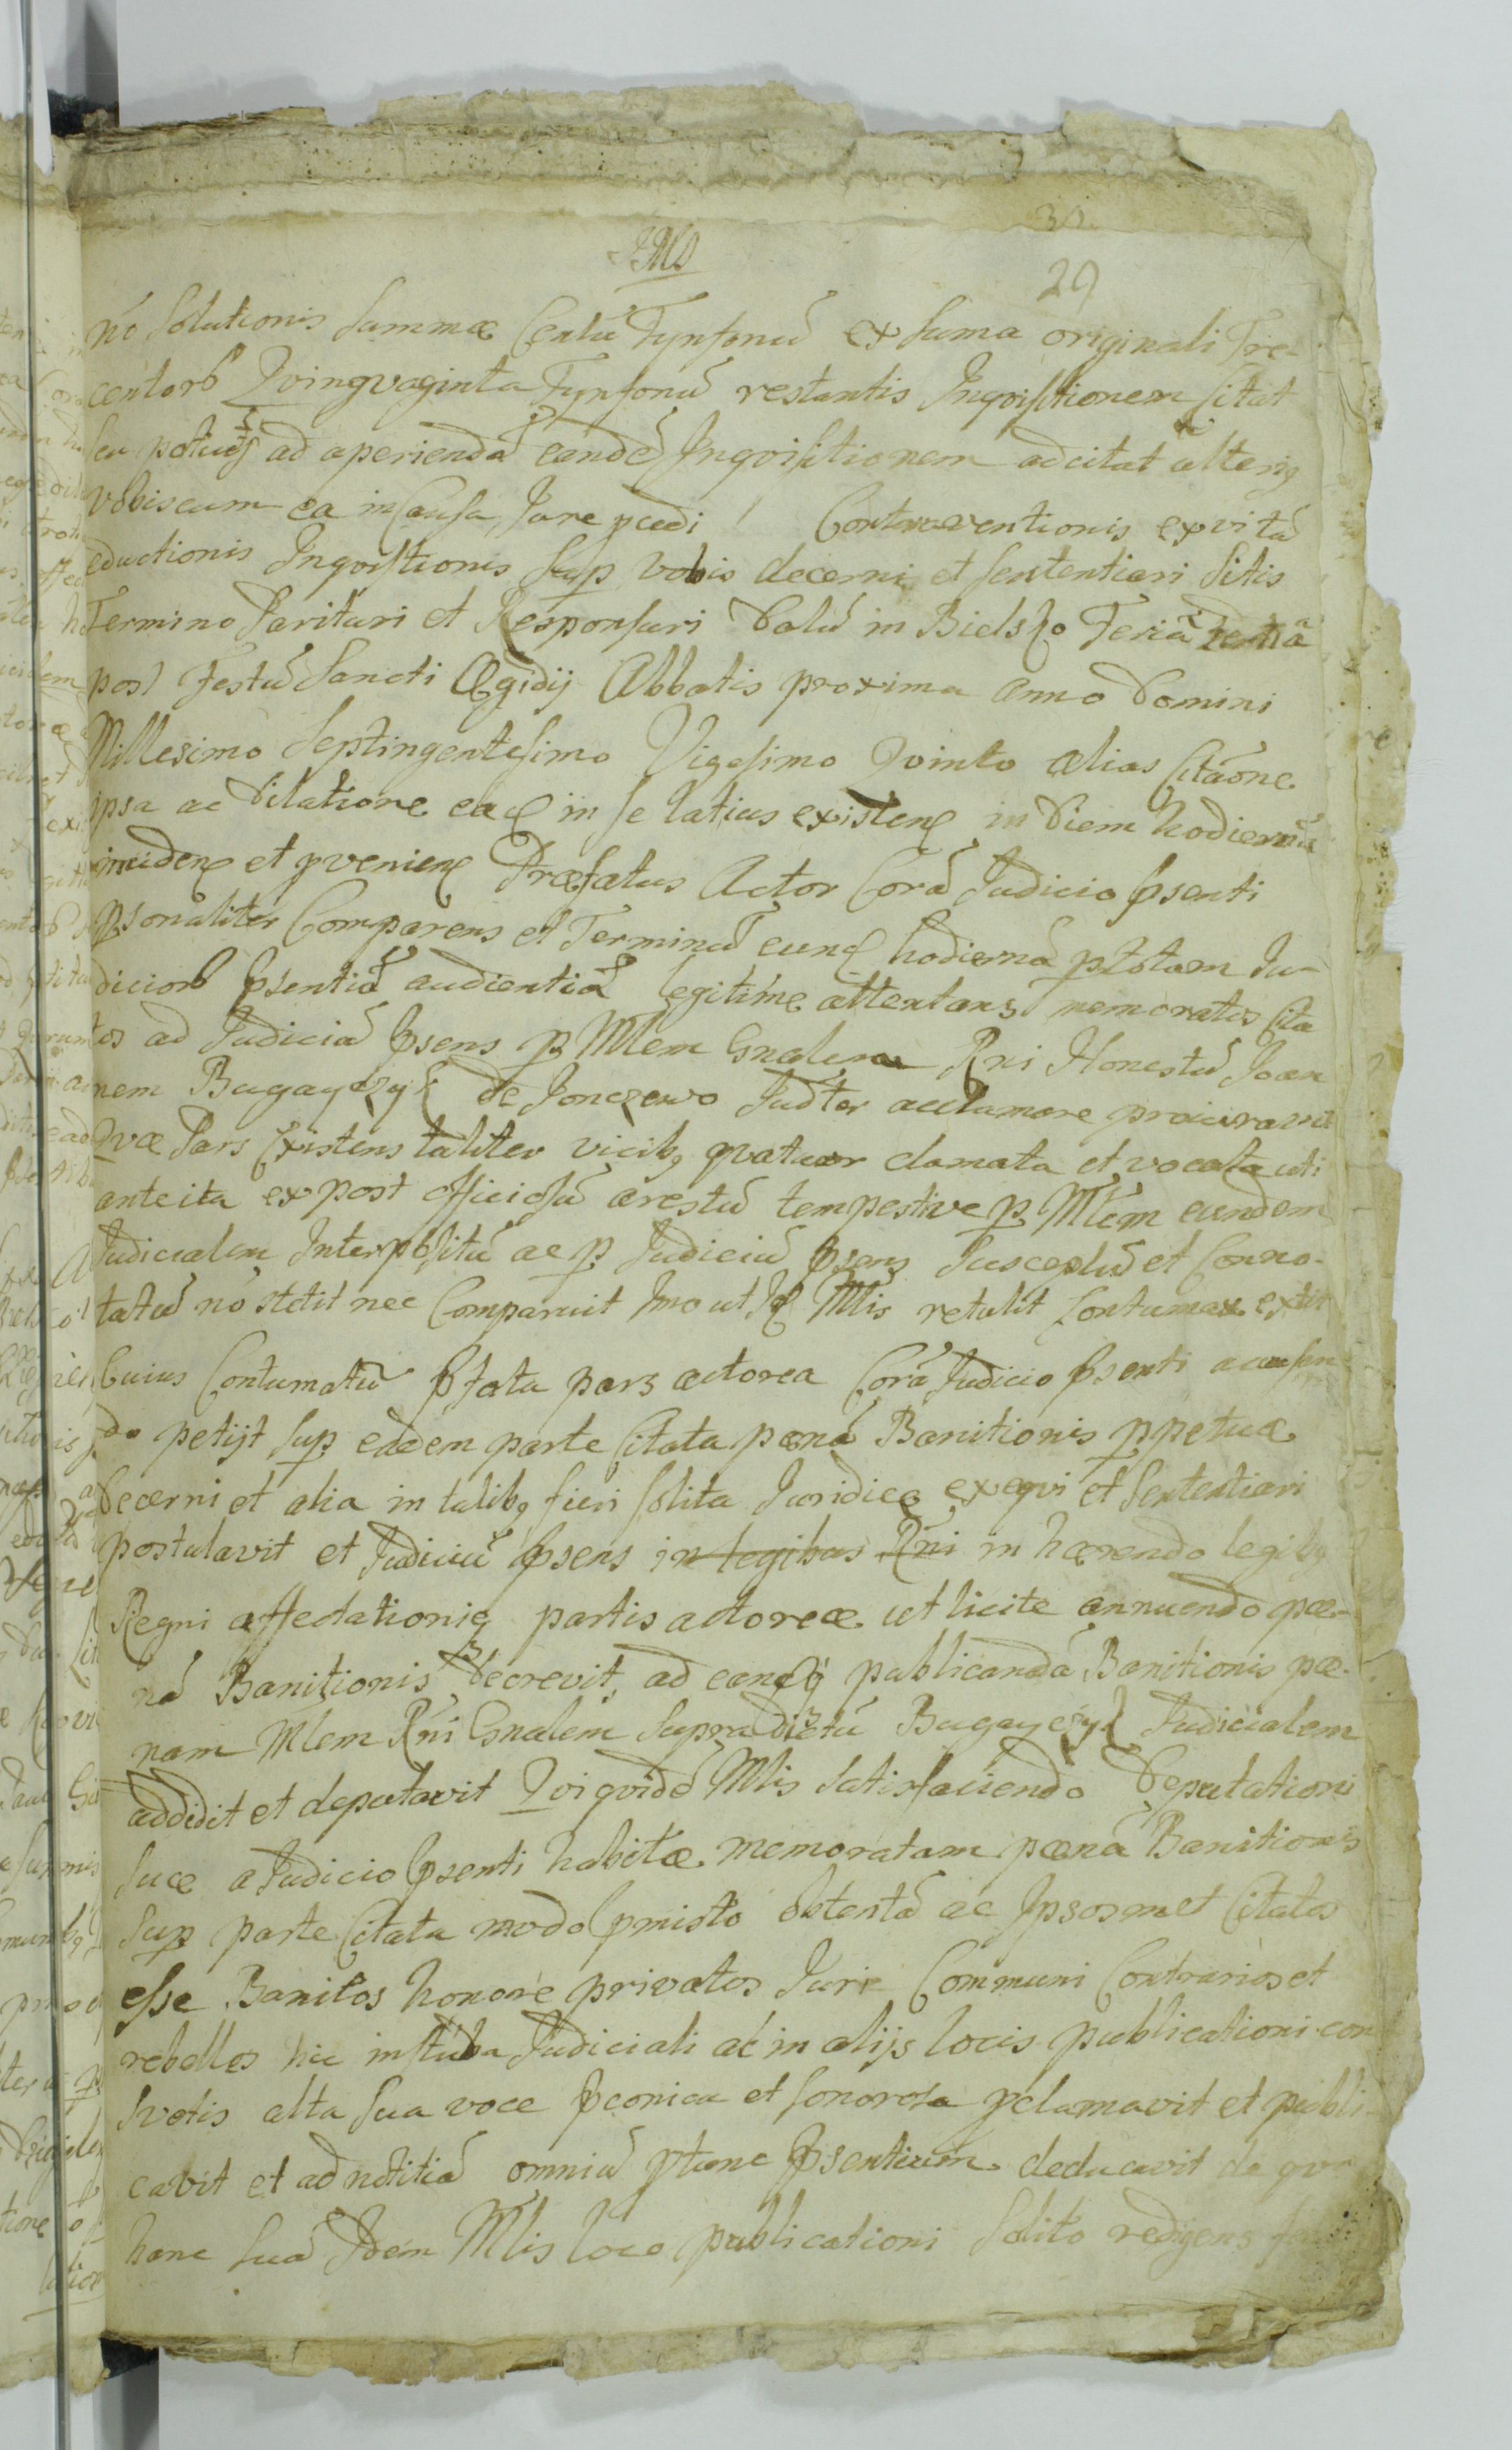 30
29
JMJ
nō Solutionis Summæ Centū Tynfonū ex suma originali Tre-
centorȝ Qvinqvaginta Tynfonū restantis Inqvisitionem Citat
seu potius ad aperiendā eandē Inqvisitionem adcitat alteriq
vobiscum ea in Causa Jure pcedi Contraventionis ex vitū
eductionis Inqvisitionis Sup vobis decerni et sententiari Sitis
Termino Parituri et Responsuri Datū in Bielsko Feriā tertiā
post Festū Sancti Ægidij Abbatis proxima Anno Domini
Millesimo Septingentesimo Vigesimo Qvinto alias Citāone
ipsa ac Dilatione eaq in se latius existen in Diem hodiernū
inciden et pvenien Præfatus Actor Corā Judicio psenti
psonaliter Comparens et Terminū eunq hodiernū p totam Ju-
diciorȝ psentiū audientiā legitime attentans memoratos Cita
tos ad Judiciū psens p Mlem Gnalem Rni Honestū Joan
nem Bugayczyk de Jonczewo Judter acclamare procuravit
Qvæ Pars Existens taliter vicibq qvatuor clamata et vocata uti
ante ita ex post officiosū arestū tempestive p Mlem eundem
Judicialem Interpositū ac p Judiciū psens Susceptū et Conno-
tatū nō stetit nec Comparuit Imo ut Iq Mlis retulit Contumax extit
Cuius Contumatiū pfata pars actorea Corā Judicio psenti accusan
do petijt sup eadem parte Citata pœnā Banitionis ppetuæ
Decerni et alia in talibq fieri solita Juridice exeqvi et Sententiari
postulavit et Judiciū psens in legibus Rni in hærendo legibq
Regni affectationiq partis actoreæ ut licite annuendo pæ-
nā Banitionis decrevit, ad eanqȝ publicandā Banitionis pæ-
nam Mlem Rni Gnalem supradictū Bugayczyk Judicialem
addidit et deputavit Qvi qvidē Mlis satisfaciendo Deputationi
suæ a Judicio psenti habitæ memoratam pænā Banitionis
sup parte Citata modo pmisso obtentā ac Ipsosmet Citatos
esse Banitos honore privatos Juri Communi Contrarios et
rebelles hic in stuba Judiciali ac in alijs locis publicationi con
svetis alta sua voce pconica et sonorosa pclamavit et publi-
cavit et ad notitiā omniū ptunc psentium deducavit de qvo
hanc suā Idem Mlis loco publicationi solito redigens